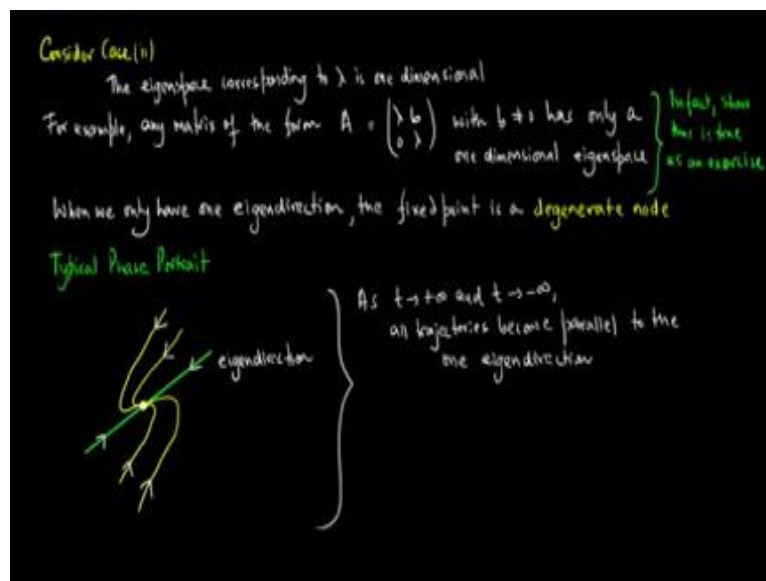 Consider Case (ii)
The eigenspace corresponding to λ is one dimensional
For example, any matrix of the form A = (λ b
0 λ) with b ≠ 0 has only a
one dimensional eigenspace
In fact, show
this is true
as an exercise
When we only have one eigendirection, the fixed point is a degenerate node
Typical Phase Portrait
eigendirection
As t → +∞ and t → -∞,
all trajectories become parallel to the
one eigendirection